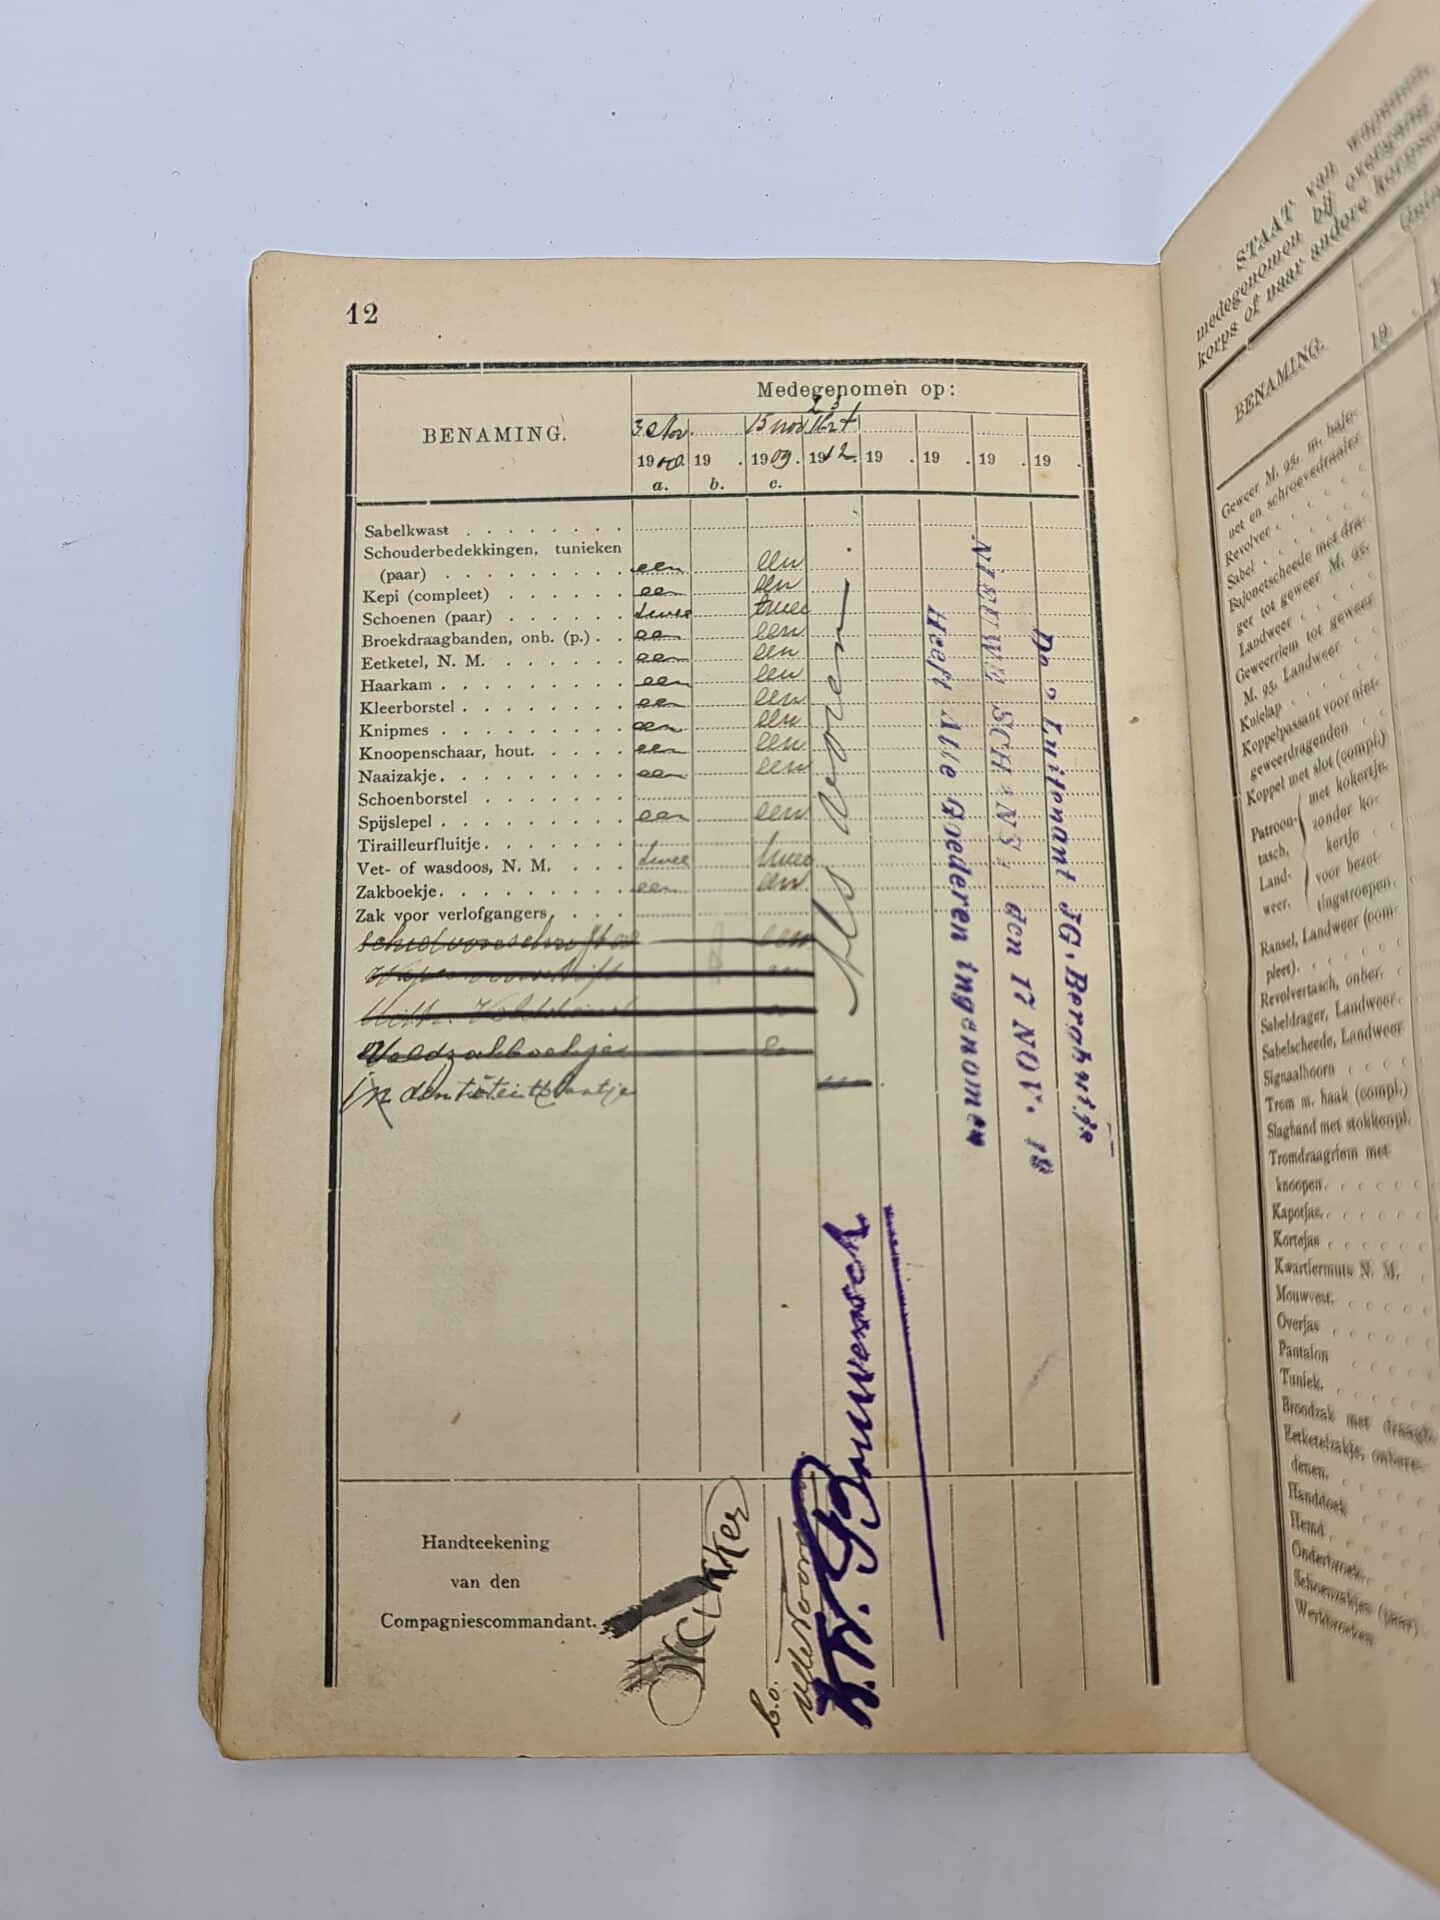 12
BENAMING.
Medegenomen op:
3 Nov. 15 nov 23 Mrt
19 19 . 1909. 1912. 19 . 19 . 19 . 19 .
a. b. c.
Sabelkwast . . . . . . .
Schouderbedekkingen, tunieken
(paar) . . . . . . . . . een een
Kepi (compleet) . . . . . . een een
Schoenen (paar) . . . . . . twee twee
Broekdraagbanden, onb. (p.) . . een een
Eetketel, N. M. . . . . . . een een
Haarkam . . . . . . . . . een een
Kleerborstel . . . . . . . . een een
Knipmes . . . . . . . . . een een
Knoopenschaar, hout. . . . . een een
Naaizakje. . . . . . . . . een een
Schoenborstel . . . . . . .
Spijslepel . . . . . . . . . een een
Tirailleurfluitje. . . . . . .
Vet- of wasdoos, N. M. . . . . twee twee
Zakboekje. . . . . . . . . een een
Zak voor verlofgangers. . . .
een
Veldzakboekje
Als voren
Heeft Alle Goederen ingenomen
NIEUWE SCHANS, den 17 NOV. 18
De Luitenant
Handteekening
van den
Compagniescommandant.
b.o.
STAAT van
medegenomen bij overgang
korps of naar andere
BENAMING.
19 .
Geweer M. 95, m. bajo-
net en schroevedraaier
Revolver . . . .
Sabel . . . . .
Bajonetscheede met dra-
ger tot geweer M. 95,
Landweer . . . .
Geweerriem tot geweer
M. 95, Landweer
Kulelap . . . .
Koppelpassant voor niet-
geweerdragenden . .
Koppel met slot (compl.)
Patroon-
tasch,
Land-
weer.
met kokertje.
zonder ko-
kertje . .
voor bezet-
tingstroepen.
Ransel, Landweer (com-
pleet). . . . .
Revolvertasch, onber. .
Sabeldrager, Landweer.
Sabelscheede, Landweer
Signaalhoorn . . . .
Trom m. haak (compl.)
Slagband met stokkenpl.
Tromdraagriem met
knoopen. . . . .
Kapotjas. . . . . .
Kortejas . . . . .
Kwartiermuts N. M. .
Mouwvest. . . . .
Overjas . . . . .
Pantalon . . . . .
Tuniek. . . . . .
Broodzak met draagb.
Eetketelzakje, onbere-
denen. . . . . .
Handdoek . . . . .
Hemd . . . . . .
Onderbroek. . . . .
Schoenzakjes (paar) .